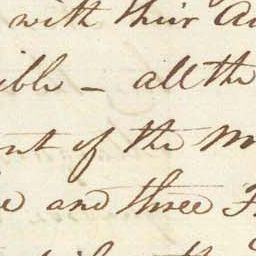 with their A
ible - all the
nt of the M
e and three F